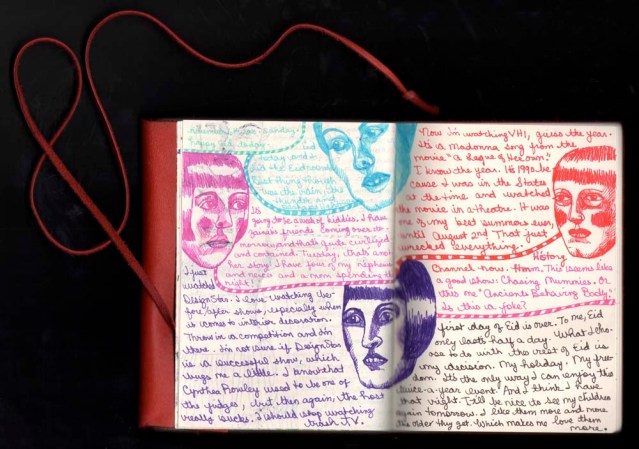 Now I'm watching VH1, guess the year.
It's a Madonna song from the
movie "A League of Her own."
I know the year. It's 1990 be
cause I was in the States
at the time and watched
the movie in a theatre. It was
one of my best summers ever,
until August 2nd. That just
wrecked everything.
History
Channel now. Hmm. This seems like
a good show: Chasing Mummies. Or
this one "Ancients Behaving Badly."
Is this a joke?
first day of Eid is over. To me, Eid
only lasts half a day. What I cho-
ose to do with the rest of Eid is
my decision. My holiday. My free
dom. It's the only way I can enjoy this
twice-a-year event. And I think I have
that right. It'll be nice to see my children
again tomorrow. I like them more and more
the older they get. Which makes me love them
more.
It's
going to be a week of kiddies. I have
friends coming over to-
morrow and that's quite
and contained. Tuesday, that's ano-
her story. I have four of my nephews
and nieces and a mom spending the
night!
I just
watched
Design Star. I love watching be-
fore/after shows, especially when
it comes to interior decoration.
Throw in a competition and I'm
there. I'm not sure if Design Star
is a successful show, which
bugs me a little. I know that
Cynthia Rowley used to be one of
the judges, but then again, the host
really sucks. I should stop watching
trash T.V.